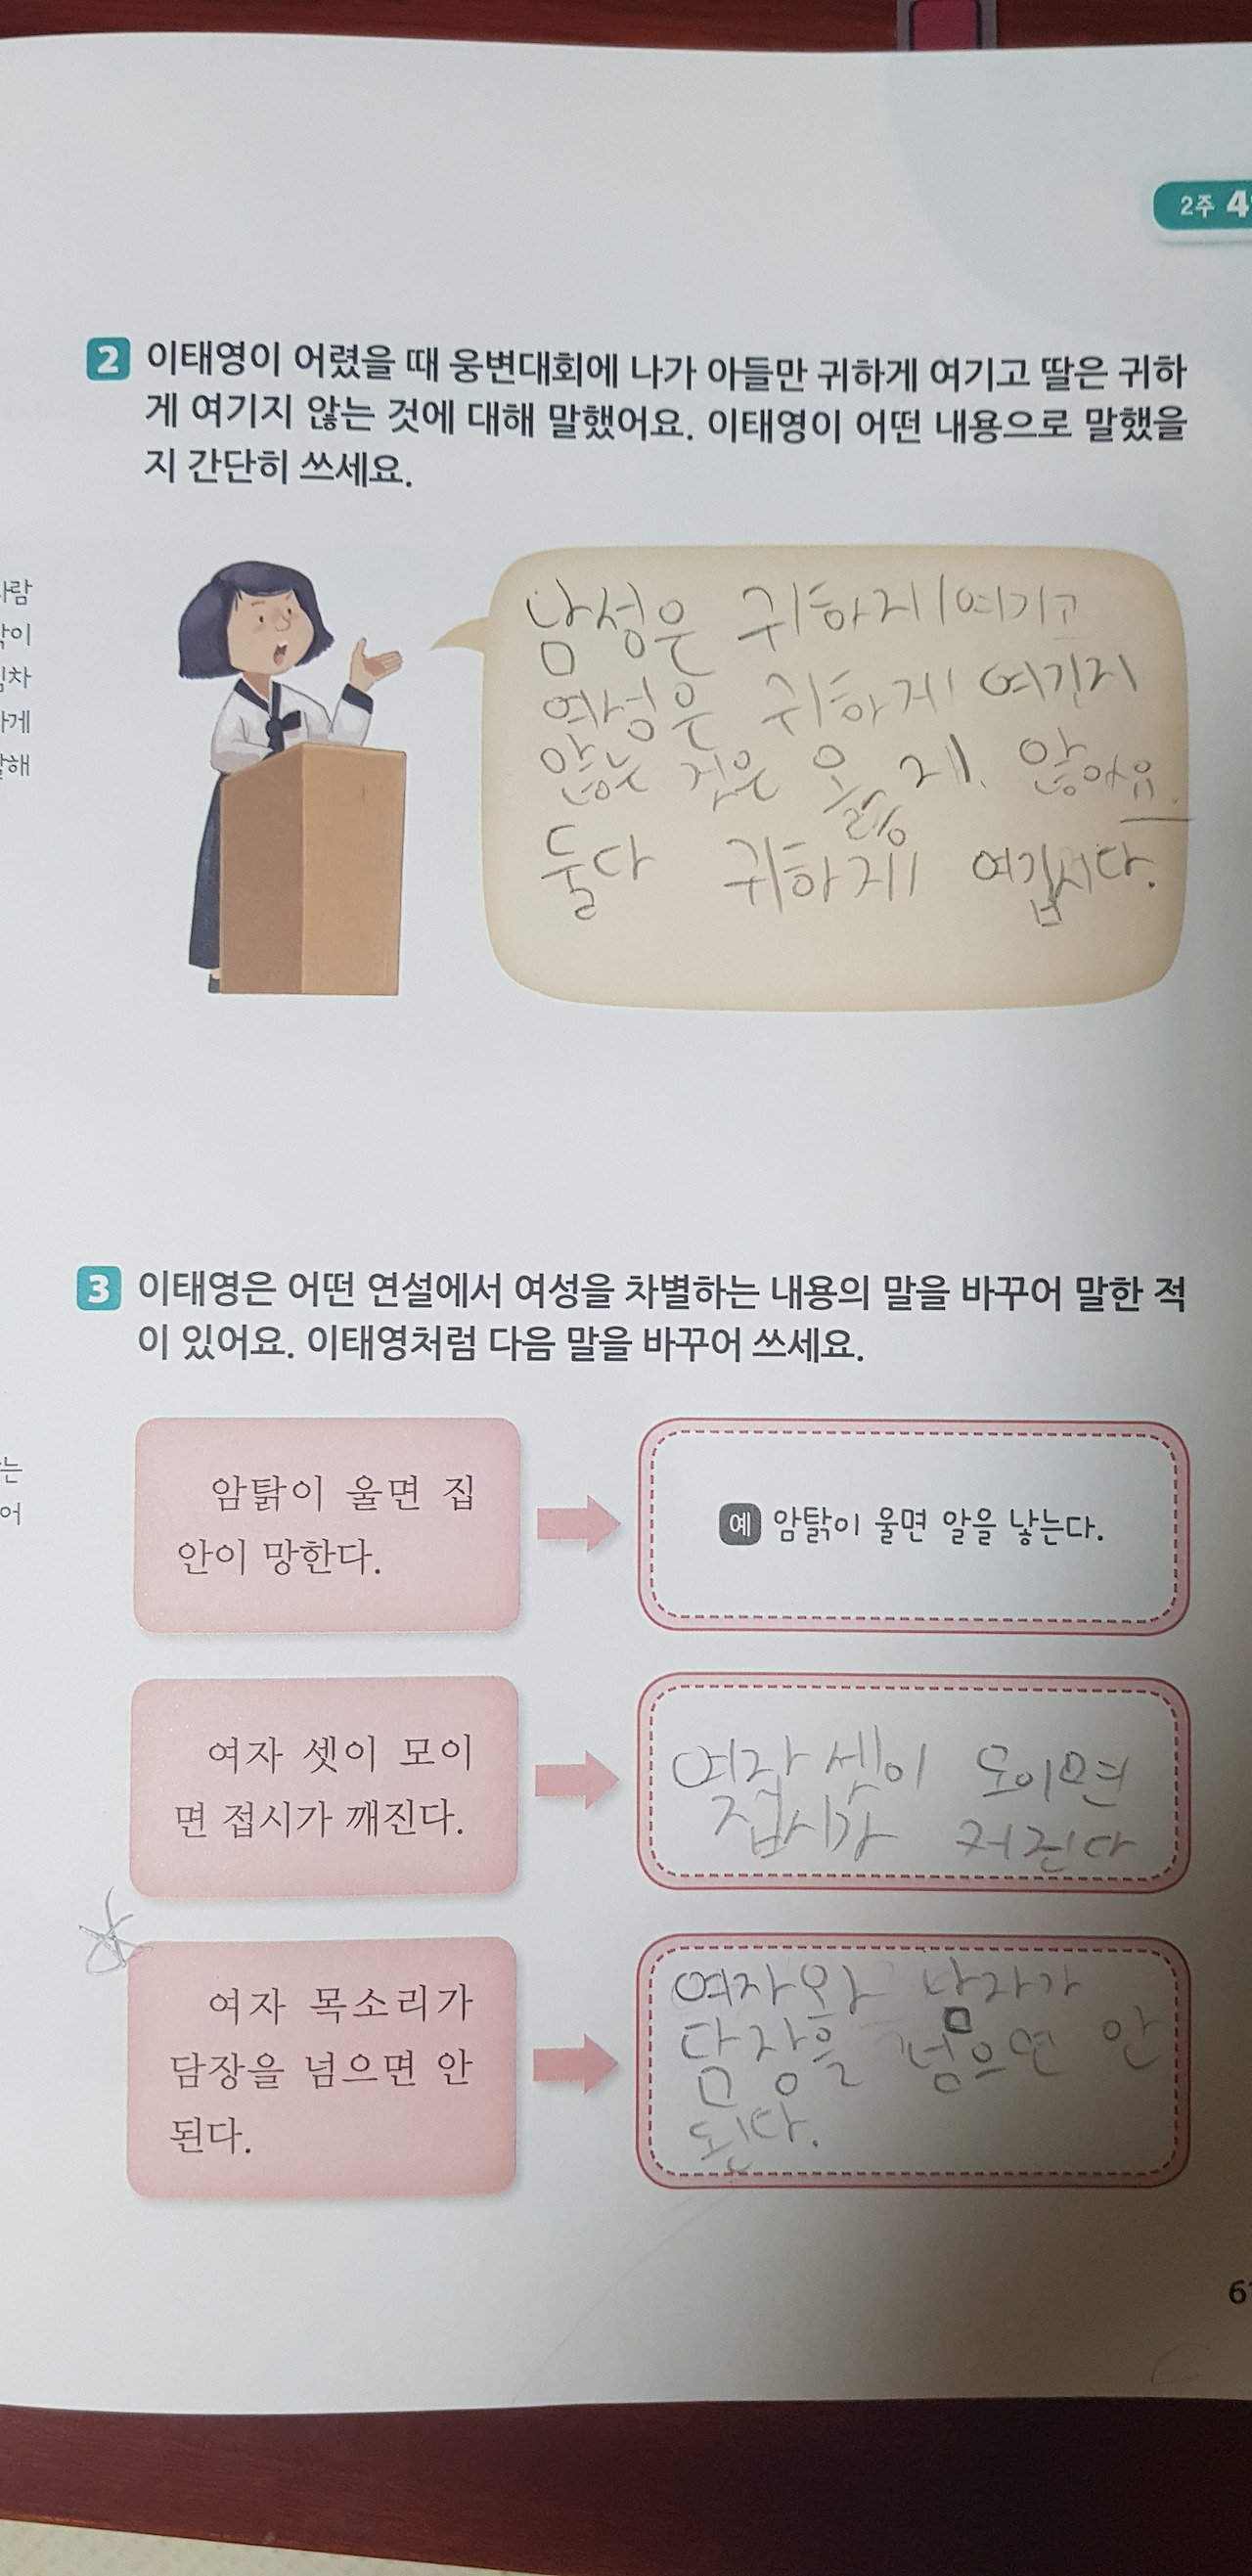 2주 4
2 이태영이 어렸을 때 웅변대회에 나가 아들만 귀하게 여기고 딸은 귀하
게 여기지 않는 것에 대해 말했어요. 이태영이 어떤 내용으로 말했을
지 간단히 쓰세요.
남성은 귀하게 여기고
여성은 귀하게 여기지
않는 것은 옳 게 않아요.
둘다 귀하게 여깁시다.
3 이태영은 어떤 연설에서 여성을 차별하는 내용의 말을 바꾸어 말한 적
이 있어요. 이태영처럼 다음 말을 바꾸어 쓰세요.
암탉이 울면 집
안이 망한다.
예 암탉이 울면 알을 낳는다.
여자 셋이 모이
면 접시가 깨진다.
여자 셋이 모이면
접시가 커진다
여자 목소리가
담장을 넘으면 안
된다.
여자와 남자가
담장을 넘으면 안
된다.